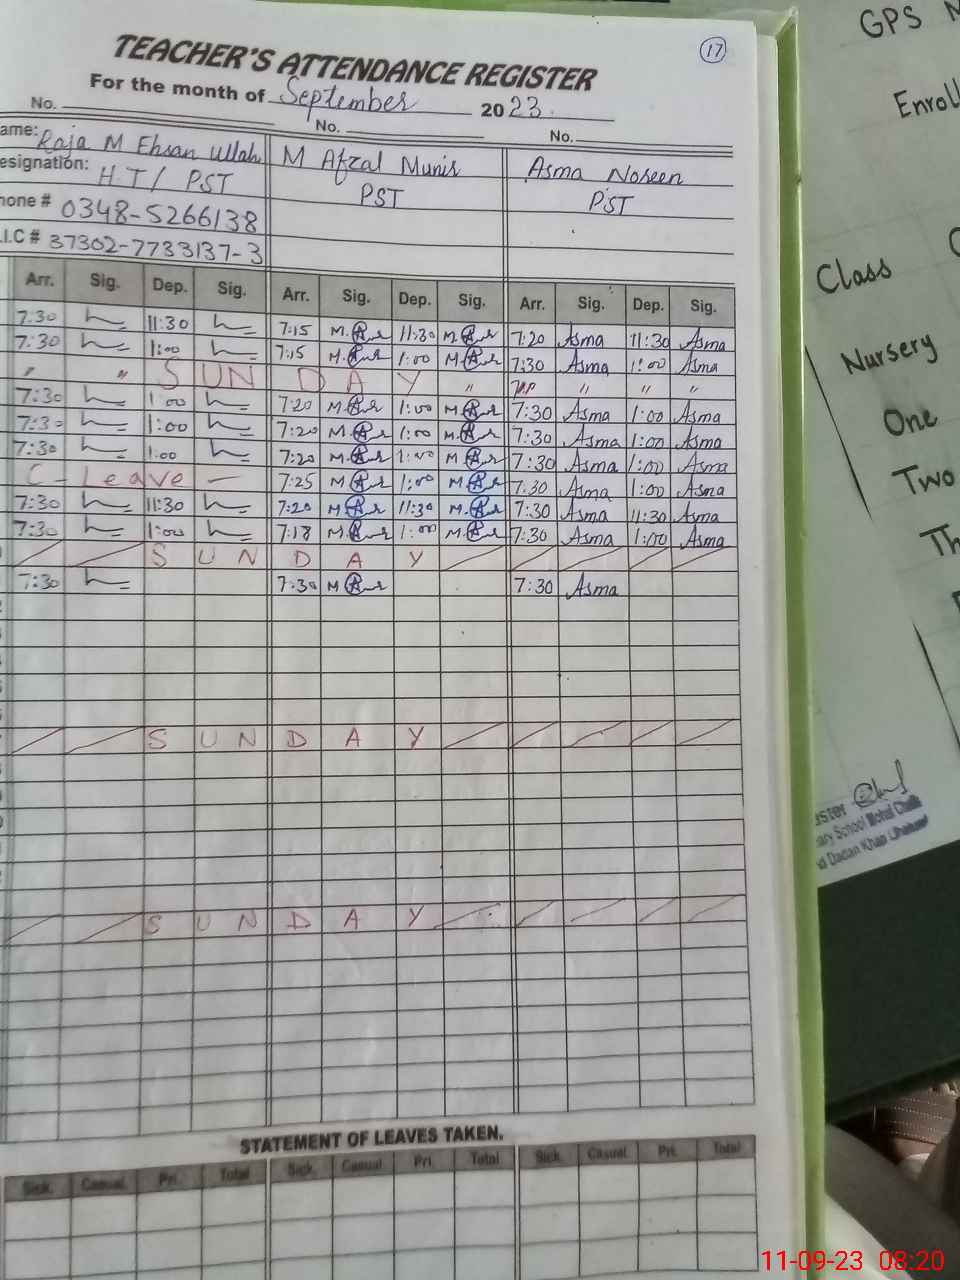 17
TEACHER'S ATTENDANCE REGISTER
For the month of September 2023.
No. No. No.
ame: Raja M Ehsan Ullah M Afzal Munir Asma Noseen
esignation: H.T/ PST PST PST
hone # 0348-5266138
.I.C # 37302-7733137-3
Arr. Sig. Dep. Sig. Arr. Sig. Dep. Sig. Arr. Sig. Dep. Sig.
7:30 11:30 7:15 11:30 7:20 Asma 11:30 Asma
7:30 1:00 7:15 1:00 7:30 Asma 1:00 Asma
" " S U N D A Y " " " "
7:30 1:00 7:20 1:00 7:30 Asma 1:00 Asma
7:30 1:00 7:20 1:00 7:30 Asma 1:00 Asma
7:30 1:00 7:20 1:00 7:30 Asma 1:00 Asma
C - Leave - 7:25 1:00 7:30 Asma 1:00 Asma
7:30 11:30 7:20 11:30 7:30 Asma 11:30 Asma
7:30 1:00 7:18 1:00 7:30 Asma 1:00 Asma
S U N D A Y
7:30 7:30 7:30 Asma
S U N D A Y
S U N D A Y
STATEMENT OF LEAVES TAKEN.
Sick. Casual. Pri. Total Sick. Casual Pri. Total Sick. Casual. Pri. Total
GPS M
Enroll
Class
Nursery
One
Two
Th
ester
ary School Mohal
d Dadan Khan
11-09-23 08:20